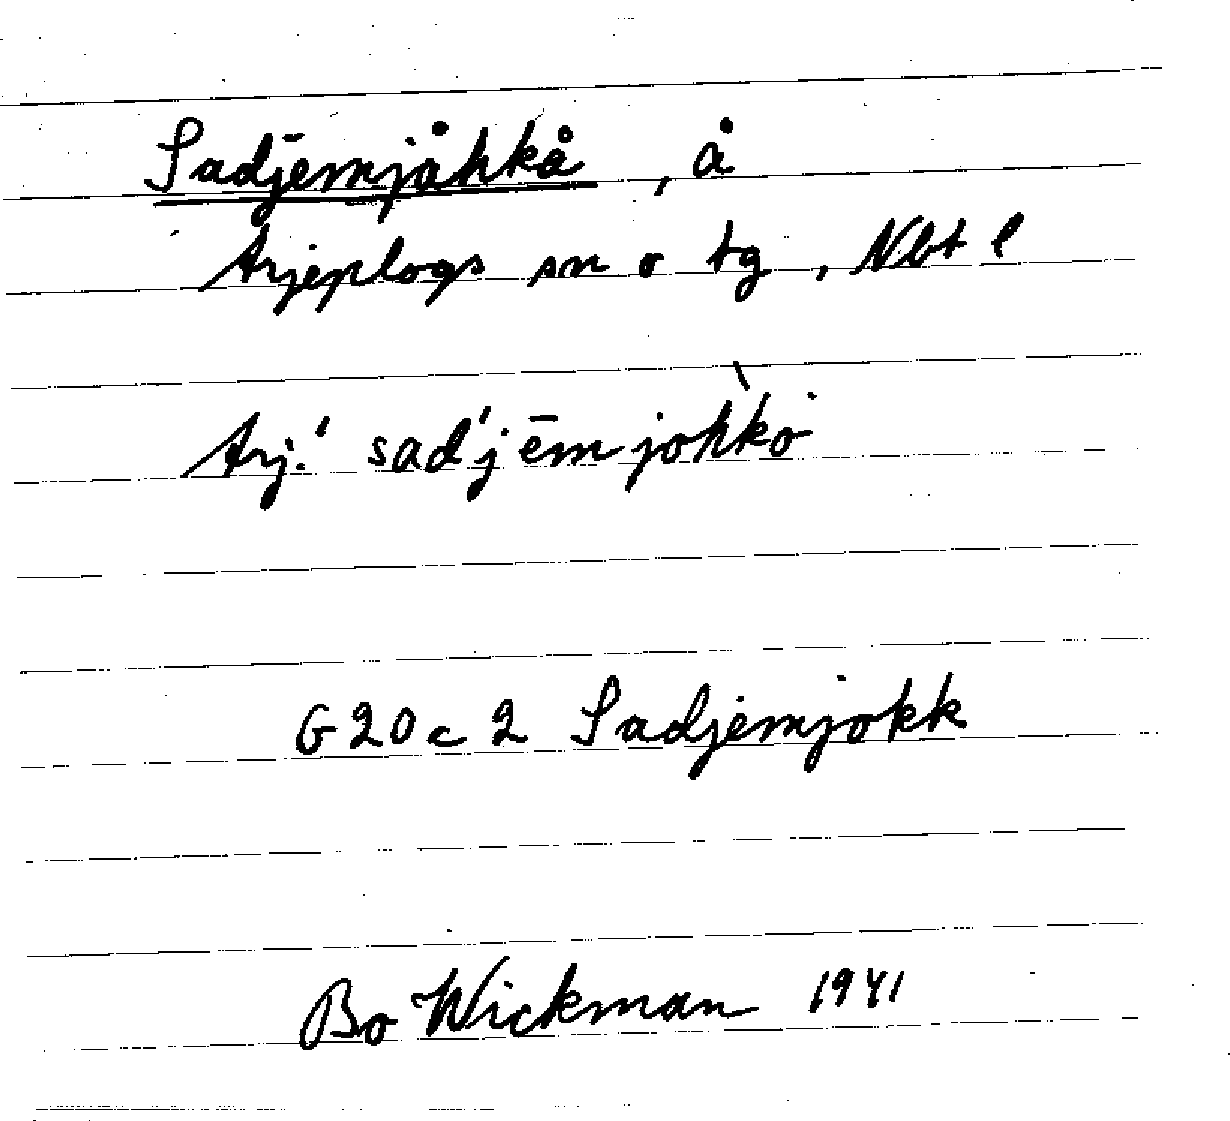 Sadjēmjåhkå, å
Arjeplogs sn o tg, Nbt l
Arj.' sad'jēmjòhkȯ
G 20 c 2 Sadjemjokk
Bo Wickman 1941